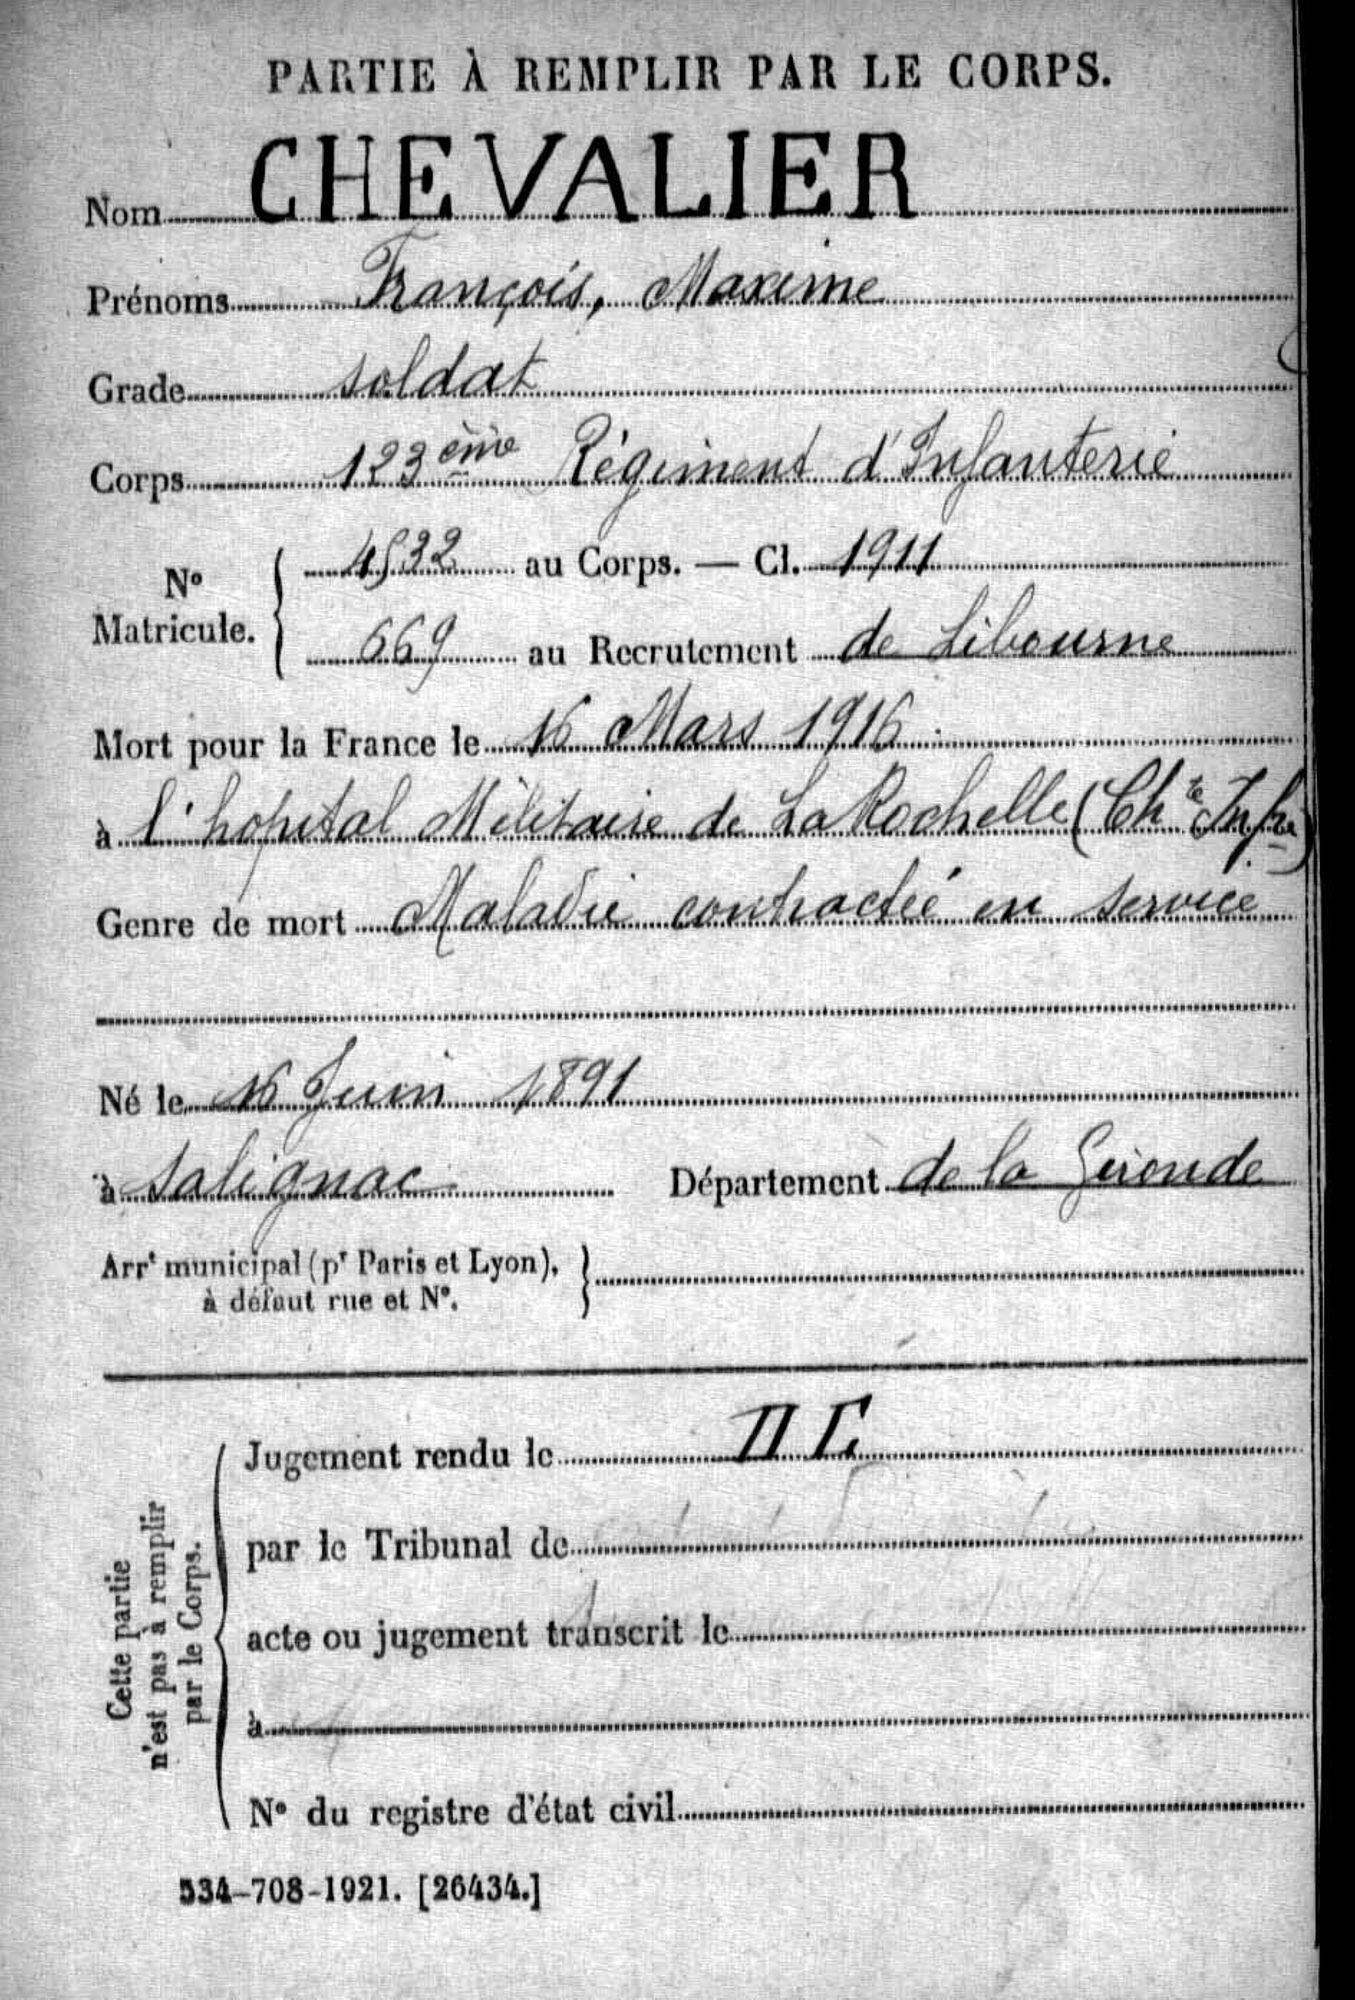 PARTIE À REMPLIR PAR LE CORPS.
Nom CHEVALIER
Prénoms François, Maxime
Grade soldat
Corps 123ème Régiment d'Infanterie
N° Matricule. 4532 au Corps. — Cl. 1911
669 au Recrutement de Libourne
Mort pour la France le 16 Mars 1916
à l'hopital Militaire de La Rochelle (Chte Infre)
Genre de mort Maladie contractée en service
Né le 16 Juin 1891
à Salignac Département de la Gironde
Arrt municipal (pr Paris et Lyon),
à défaut rue et N°.
Cette partie
n'est pas à remplir
par le Corps.
Jugement rendu le
par le Tribunal de
acte ou jugement transcrit le
à
N° du registre d'état civil
534-708-1921. [26434.]